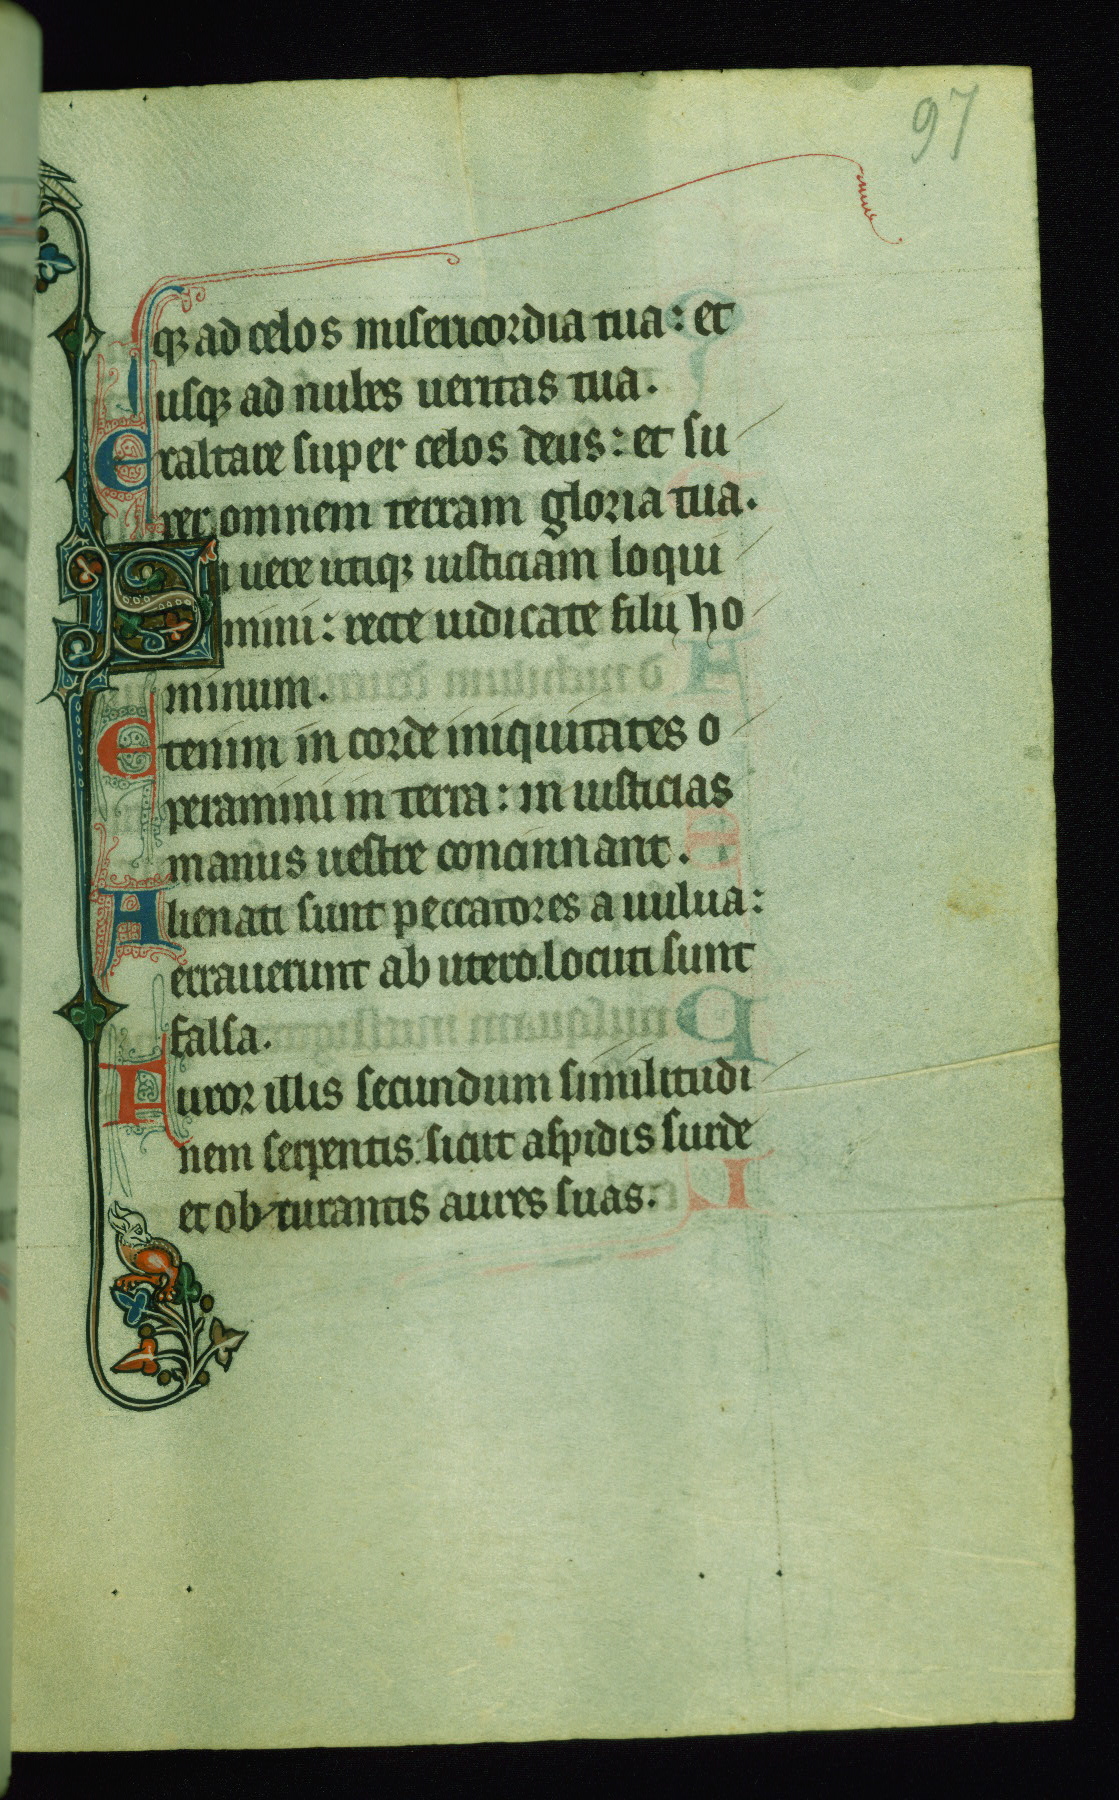 97
qꝫ ad celos misericordia tua: et
usqꝫ ad nubes ueritas tua.
Exaltare super celos deus: et su
per omnem terram gloria tua.
Si uere utiqꝫ iusticiam loqui
mini: recte iudicate filij ho
minum.
Etenim in corde iniquitates o
peramini in terra: in iusticias
manus uestre concinnant.
Alienati sunt peccatores a uulua:
errauerunt ab utero locuti sunt
falsa.
Furor illis secundum similitudi
nem serpentis: sicut aspidis surde
et obturantis aures suas.